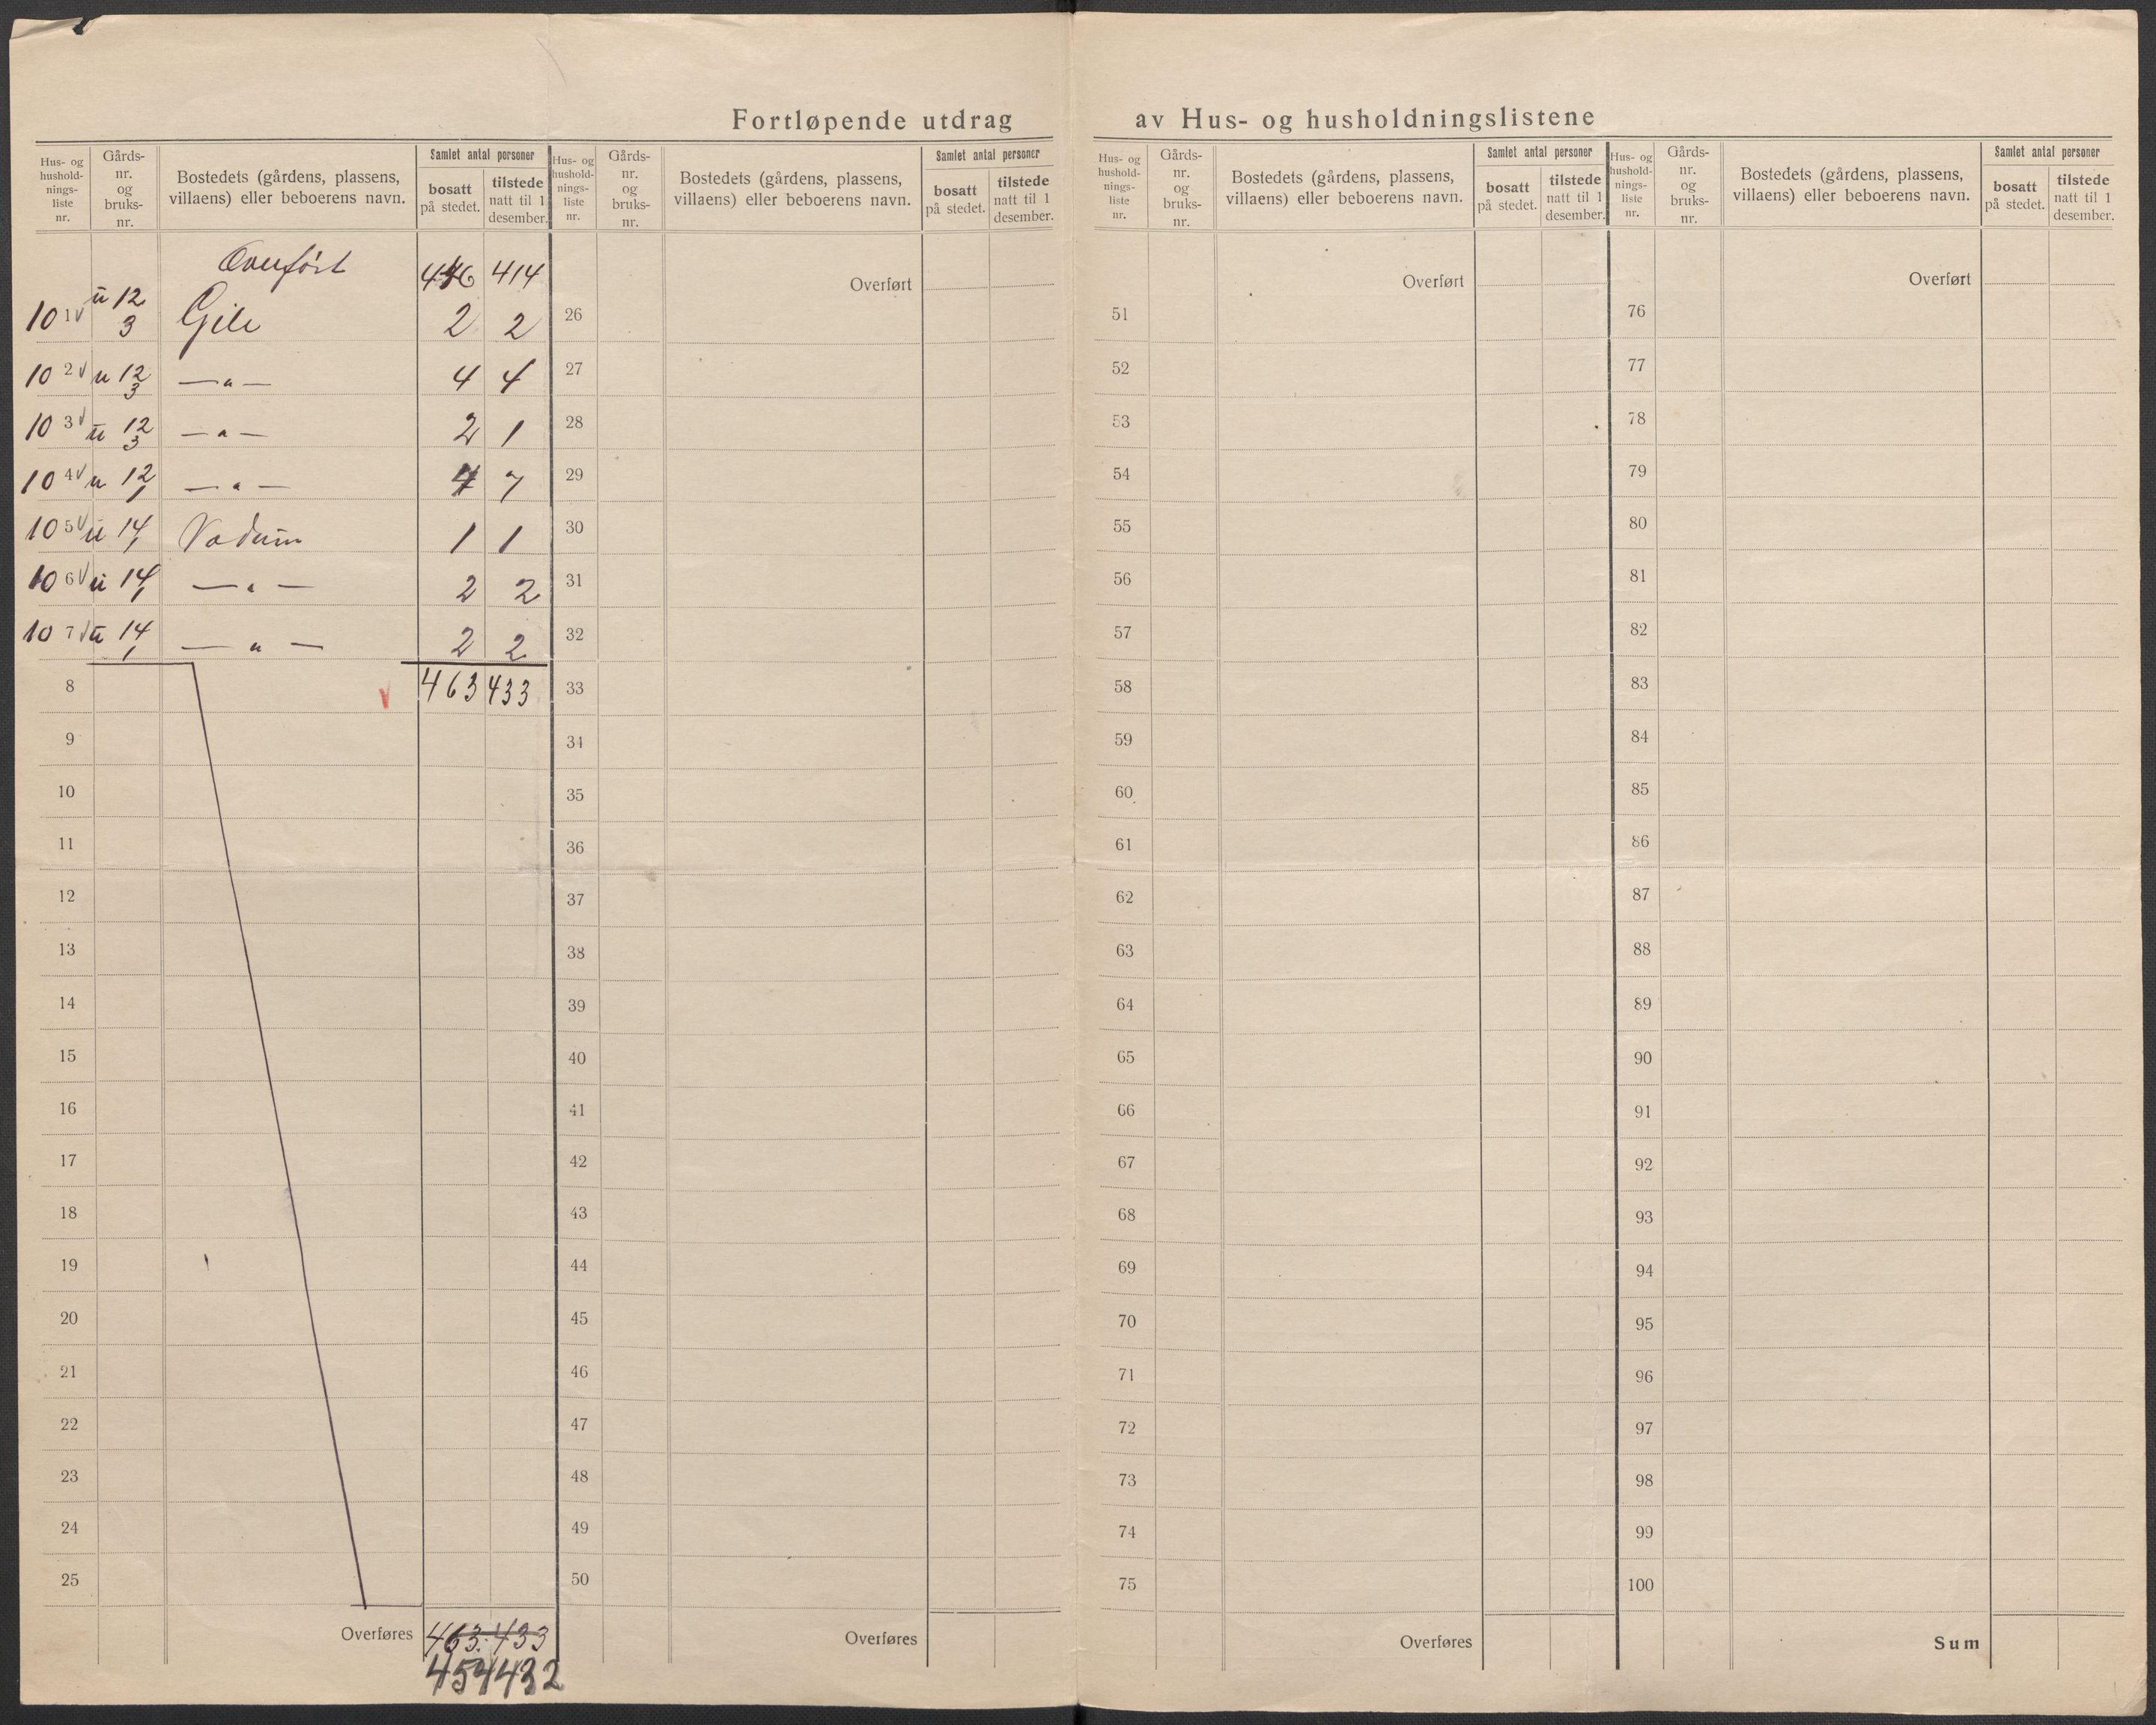 Fortløpende utdrag av Hus- og husholdningslistene
Hus- og hushold-nings-liste nr. Gårds-nr. og bruks-nr. Bostedets (gårdens, plassens, villaens) eller beboerens navn. Samlet antal personer bosatt på stedet. tilstede natt til 1 desember.
Overført 414
101 u 12 3 Gile 2 2
102 u 12 3 —„— 4 4
103 u 12 3 —„— 2 1
104 u 12 1 —„— 7
105 u 14 1 Vadum 1 1
106 u 14 1 —„— 2 2
107 u 14 1 —„— 2 2
8 463 433
9
10
11
12
13
14
15
16
17
18
19
20
21
22
23
24
25
Overføres 463 433
454 432
Hus- og hushold-nings-liste nr. Gårds-nr. og bruks-nr. Bostedets (gårdens, plassens, villaens) eller beboerens navn. Samlet antal personer bosatt på stedet. tilstede natt til 1 desember.
Overført
26
27
28
29
30
31
32
33
34
35
36
37
38
39
40
41
42
43
44
45
46
47
48
49
50
Overføres
Hus- og hushold-nings-liste nr. Gårds-nr. og bruks-nr. Bostedets (gårdens, plassens, villaens) eller beboerens navn. Samlet antal personer bosatt på stedet. tilstede natt til 1 desember.
Overført
51
52
53
54
55
56
57
58
59
60
61
62
63
64
65
66
67
68
69
70
71
72
73
74
75
Overføres
Hus- og hushold-nings-liste nr. Gårds-nr. og bruks-nr. Bostedets (gårdens, plassens, villaens) eller beboerens navn. Samlet antal personer bosatt på stedet. tilstede natt til 1 desember.
Overført
76
77
78
79
80
81
82
83
84
85
86
87
88
89
90
91
92
93
94
95
96
97
98
99
100
Sum